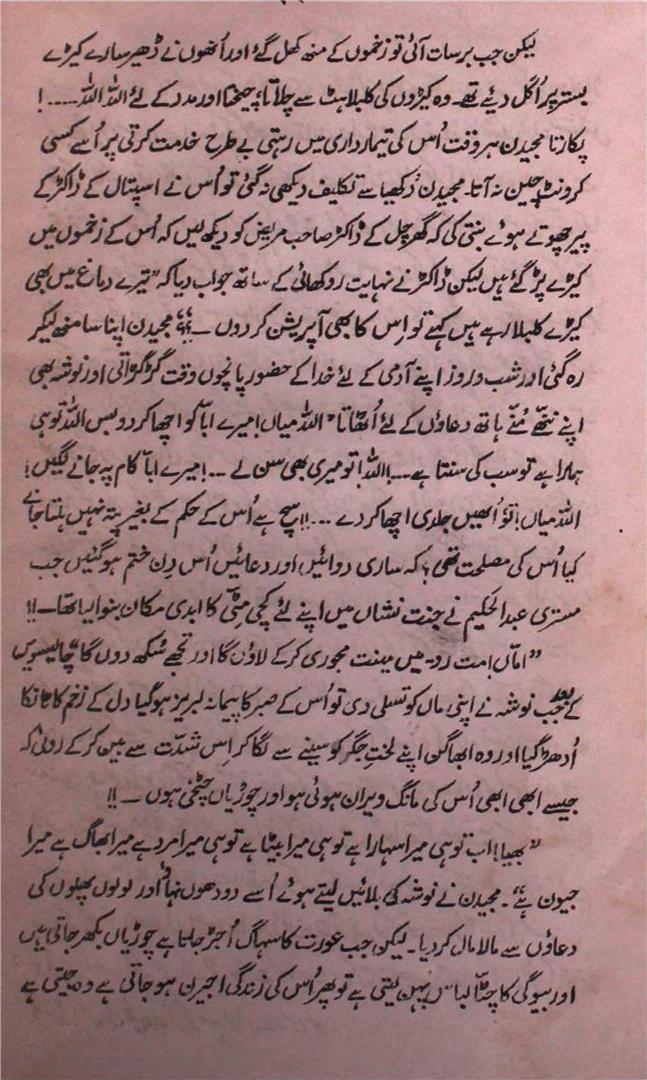 لیکن جب برسات آئی تو زخموں کے منھ کھل گئے اور اُنھوں نے ڈھیر سارے کیڑے
بستر پر اُگل دیئے تھے۔ وہ کیڑوں کی کلبلاہٹ سے چلاتا، چیختا اور مدد کے لئے اللہ اللہ ۔۔۔۔!
پکارتا مجیدن ہر وقت اُس کی تیمارداری میں رہتی بے طرح خدمت کرتی پر اُسے کسی
کرونٹ چین نہ آتا۔ مجیدن دُکھیا سے تکلیف دیکھی نہ گئی تو اُس نے اسپتال کے ڈاکٹر کے
پیر چھوتے ہوئے بنتی کی کہ گھر چل کے ڈاکٹر صاحب مریض کو دیکھ لیں کہ اُس کے زخموں میں
کیڑے پڑ گئے ہیں لیکن ڈاکٹر نے نہایت روکھائی کے ساتھ جواب دیا کہ "تیرے دماغ میں بھی
کیڑے کلبلا رہے ہیں کہے تو اِس کا بھی آپریشن کر دوں ۔۔؟" مجیدن اپنا سا منھ لیکر
رہ گئی اور شب و روز اپنے آدمی کے لئے خدا کے حضور پانچوں وقت گڑگڑاتی اور نوشہ بھی
اپنے ننھے مُنّے ہاتھ دعاوں کے لئے اُٹھاتا "اللہ میاں! میرے ابا کو اچھا کر دو بس اللہ تو ہی
ہمارا ہے تو سب کی سنتا ہے ۔۔! اللہ! تو میری بھی سن لے ۔۔! میرے ابا کام پہ جانے لگیں!
اللہ میاں! تو اُنھیں جلدی اچھا کر دے ۔۔۔!! سچ ہے اُس کے حکم کے بغیر پتہ نہیں ہلتا جانے
کیا اُس کی مصلحت تھی؟ کہ ساری دوائیں اور دعائیں اُس دن ختم ہو گئیں جب
مستری عبدالحکیم نے جنت نشاں میں اپنے لئے کچی مٹی کا ابدی مکان بنوا لیا تھا۔۔!!
"اماں! مت رو۔ میں مینت مجوری کر کے لاؤں گا اور تجھے سُکھ دوں گا" چالیسویں
کے بعد جب نوشہ نے اپنی ماں کو تسلی دی تو اُس کے صبر کا پیمانہ لبریز ہو گیا دل کے زخم کا ٹانکا
اُدھڑ گیا اور وہ ابھاگن اپنے لختِ جگر کو سینے سے لگا کر اِس شدّت سے بین کر کے روئی کہ
جیسے ابھی ابھی اُس کی مانگ ویران ہوئی ہو اور چوڑیاں چٹخی ہوں ۔۔!!
"بھیا! اب تو ہی میرا سہارا ہے تو ہی میرا بیٹا ہے تو ہی میرا مرد ہے میرا بھاگ ہے میرا
جیون ہے"۔ مجیدن نے نوشہ کی بلائیں لیتے ہوئے اُسے دودھوں نہاؤ اور پوتوں پھلوں کی
دعاؤں سے مالا مال کر دیا۔ لیکن جب عورت کا سہاگ اُجڑ جاتا ہے چوڑیاں بکھر جاتی ہیں
اور بیوگی کا چٹا لباس پہن لیتی ہے تو پھر اُس کی زندگی اجیرن ہو جاتی ہے وہ جیتی ہے